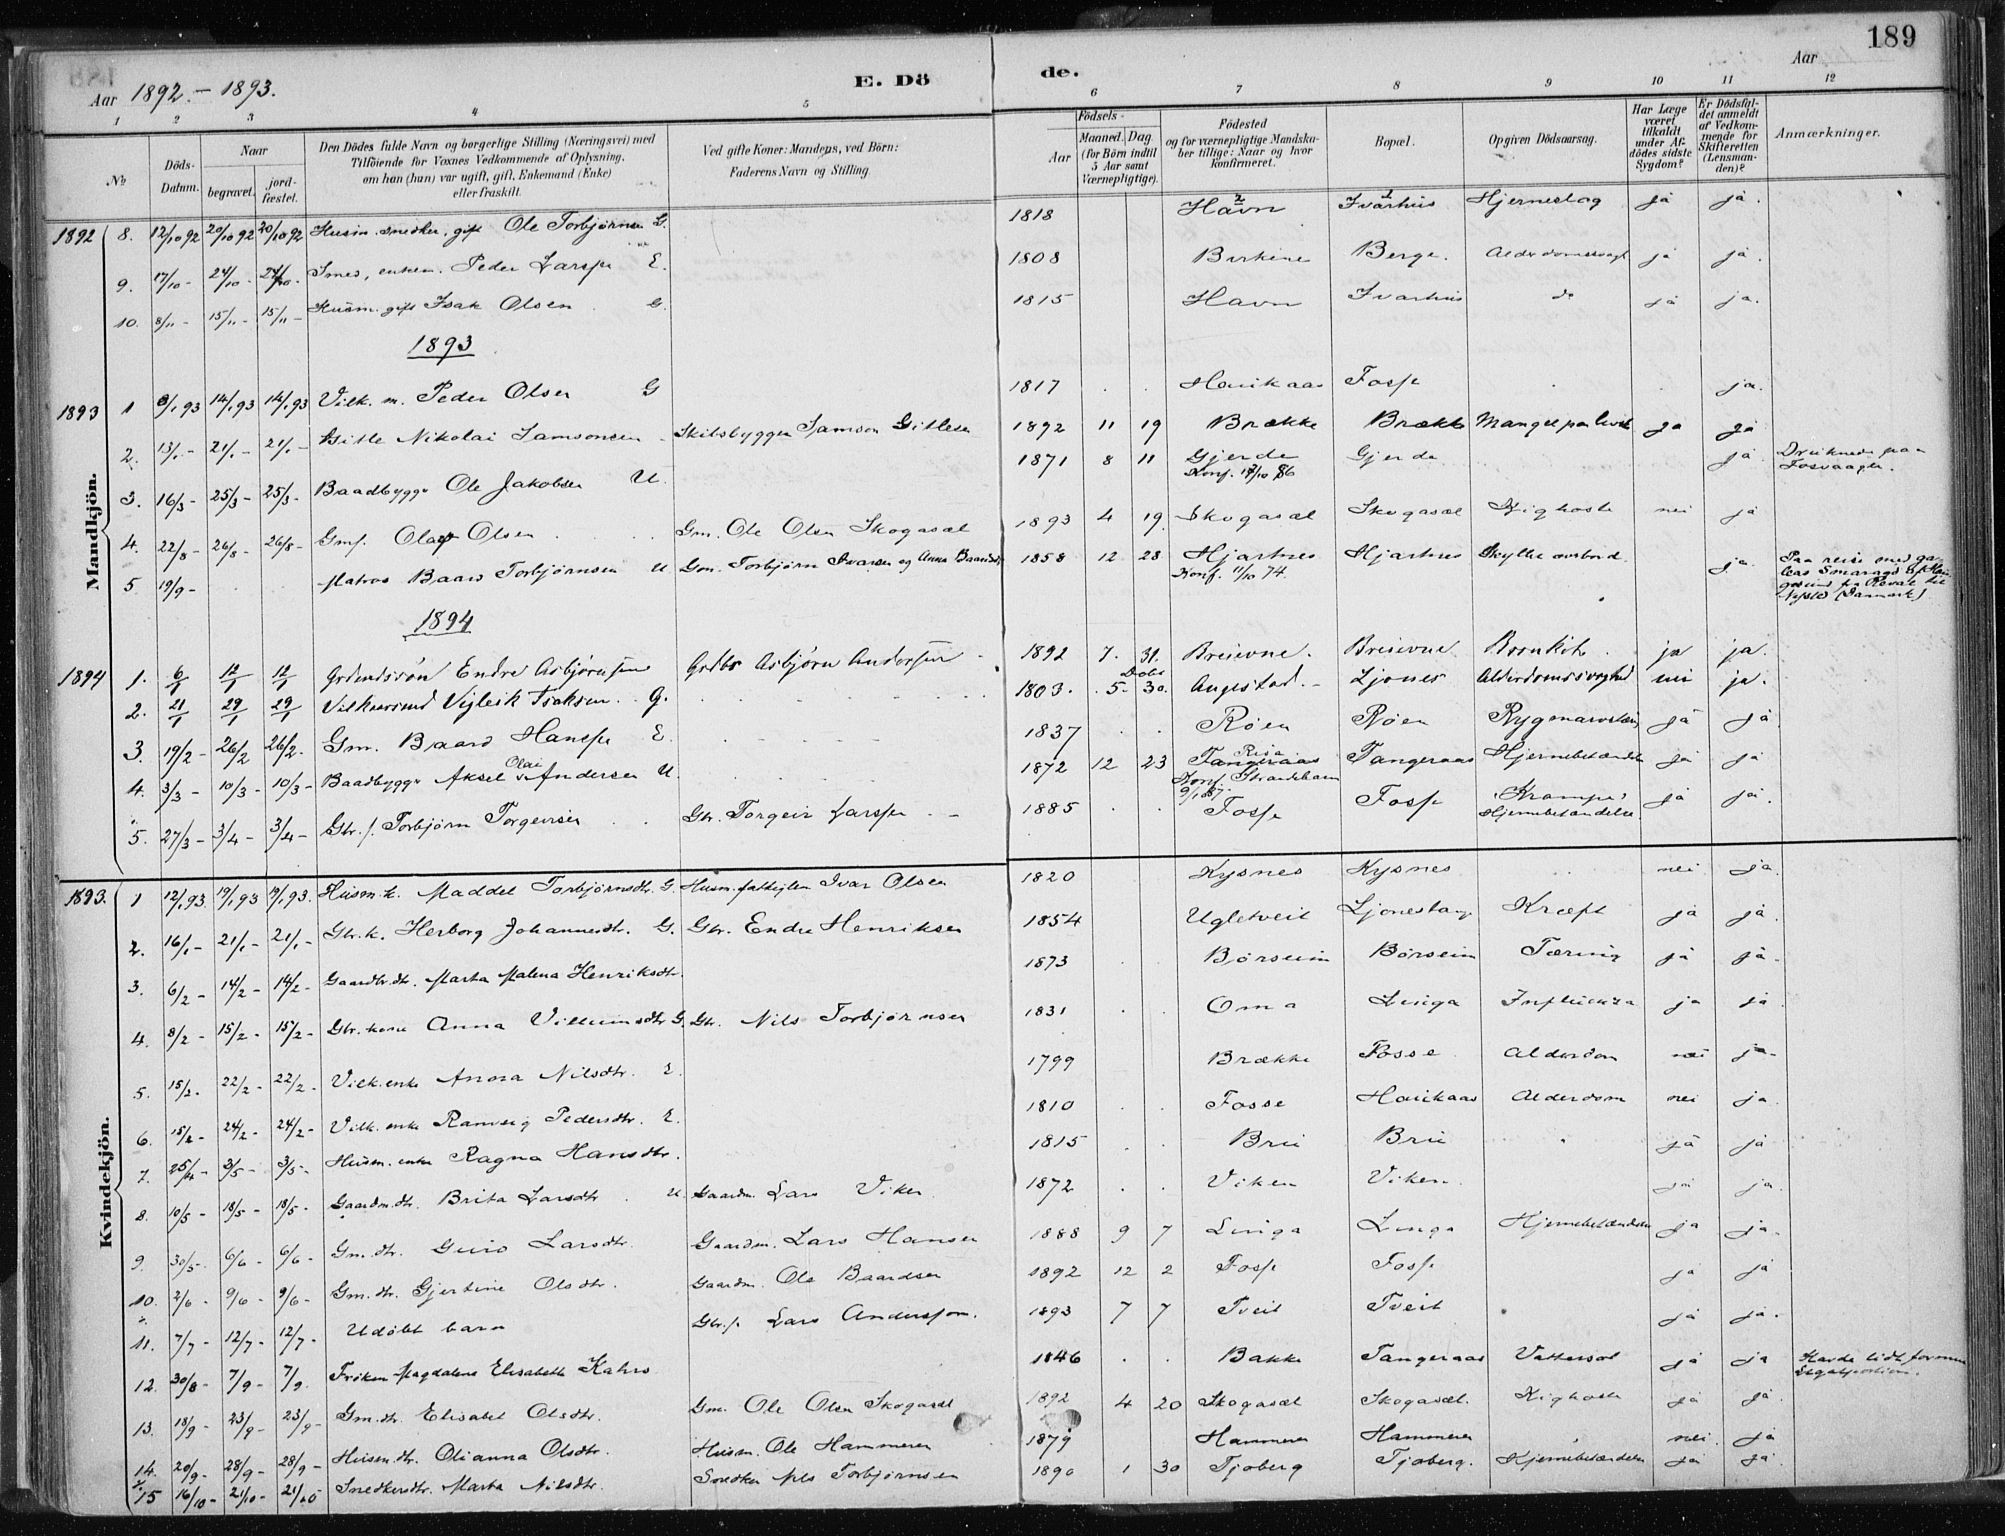 189
Aar 1892.-1893.
E. Dö
de.
Aar
1 2 3 4 5 6 7 8 9 10 11 12
№
Döds-Datum.
Naar
begravet.
jord-fæstet.
Den Dödes fulde Navn og borgerlige Stilling (Næringsvei) med
Tilföiende for Voxnes Vedkommende af Oplysning,
om han (hun) var ugift, gift, Enkemand (Enke)
eller fraskilt.
Ved gifte Koner: Mandens, ved Börn:
Faderens Navn og Stilling.
Födsels-
Aar
Maaned. Dag.
(for Börn indtil
5 Aar samt
Værnepligtige).
Födested
og for værnepligtige Mandska-
ber tillige: Naar og hvor
konfirmeret.
Bopæl.
Opgiven Dödsaarsag.
Har Læge
været
tilkaldt
under Af-
dödes sidste
Sygdom?
Er Dödsfal-
det anmeldt
af Vedkom-
mende for
Skifteretten
(Lensman-
den)?
Anmærkninger.
Mandkjön.
1892 8. 12/10 92 20/10 92 20/10 92 Husm. snedker, gift Ole Torbjørnsen G. 1818 Havn Ivarhus Hjerneslag ja ja.
9. 17/10 - 24/10 - 24/10 - Smed, enkem. Peder Larssen E. 1808 Birkine Berge. Alderdomssvagh ja ja.
10. 8/11 - 15/11 - 15/11 - Husm. gift Isak Olsen G. 1815 Havn Ivarhus do ja ja.
1893
1893 1 8/1 93 14/1 93 14/1 93 Vilk. m. Peder Olsen G 1817 . . Haukaas Fosse . . ja.
2. 13/1 - 21/1 - 21/1 - Gitle Nikolai Samsonsen - Skibsbygger Samson Gitlesen 1892 11 19 Brække Brække Mangel paa livsk ja ja
3. 16/3 - 25/3 - 25/3 - Baadbygger Ole Jakobsen U. 1871 8 11 Gjerde Gjerde ja Druknede paa
Konf. 17/10 86 Fosvaagen.
4. 22/8 - 26/8 - 26/8 - Gmf. Olaf Olsen Gm. Ole Olsen Skogasæl 1893 4 19. Skogasæl Skogasæl Kighoste nei ja
5 19/9 - Matros Baard Torbjørnsen U Gm. Torbjørn Ivarsen og Anna Baardsdtr 1858 12 28 Hjartnes Hjartnes Skyllet overbord. ja. Paa reise med ga-
Konf. 11/10 74. leas Smaragd af Hau-
gesund fra Reval til
(Danmark)
1894
1894 1. 6/1 12/1 12/1 Grdmdssøn Endre Asbjørnsen Grdbr Asbjørn Anderssen - 1892 7. 31. Breievne. Breievne Bronkit. ja ja.
2. 21/1 29/1 29/1 Vilkaarsmd Vigleik Isaksen. . G. 1803. 5- 30. Augestad. - Ljones Alderdomssvaghed nei ja.
3. 19/2 - 26/2 26/2. Gm. Baard Hanssen E 1837 . . Røen Røen ja ja
4. 3/3 - 10/3 - 10/3 - Baadbygger Aksel Olai Andersen U. 1872 12 23 Tangeraas Tangeraas Hjernebetændelse ja ja
Konf. Strandebarm
5. 27/3 - 3/4 - 3/4 - Gbr.s. Torbjørn Torgeirsen Gbr. Torgeir Larssen - - 1885 . . Fosse Fosse "Krampe" ja ja.
Hjernebetændelse
Kvindekjön.
1893. 1 12/1 93. 19/1 93 19/1 93. Husm.k. Maddel Torbjørnsdtr. G. Husm. Ivar Olsen 1820 Kysnes Kysnes . . nei ja.
2. 16/1 - 21/1 - 21/1 - Gbr.k. Herborg Johannesdtr. G. Gbr. Endre Henriksen 1854 Ugletveit Ljonestang Kræft ja ja.
3. 6/2 - 14/2 - 14/2 - Gaardbr.dtr. Marta Malena Henriksdtr. 1873 . Børsein Børsein Tæring ja ja.
4. 8/2 - 15/2 - 15/2 - Gbr. kone Anna Villumsdtr G. Gbr. Nils Torbjørnsen 1831 . . Oma Linga Influenza ja ja
5. 15/2. 22/2 - 22/2 - Vilk. enke Anna Nilsdtr. E. 1799 Brække Fosse Alderdom nei ja.
6. 15/2 - 24/2 - 24/2 - Vilk. enke Ranveig Pedersdtr. E. 1810 . . Fosse Haukaas Alderdom nei ja.
7. 25/4 - 3/5 - 3/5 - Husm. enke Ragna Hansdtr. 1815 . . Brii Brii " ja ja
8. 10/5 - 18/5 - 18/5 - Gaardm.dtr. Brita Larsdtr . U. Gaardm. Lars Viken 1872 . . Viken Viken. ja ja.
9. 30/5 - 6/6 - 6/6 - Gm. dtr. Guro Larsdtr. Gaardm. Lars Hansen 1888 9 7 Linga Linga Hjernebetændelse ja ja.
10. 2/6 - 9/6 - 9/6 - Gm. dtr. Gjertine Olsdtr. Gaardm. Ole Baardsen 1892 12 2 Fosse Fosse ja ja
11. 7/7 - 12/7 - 12/7 - Udøbt barn Gbr.s. Lars Anderssen. 1893 7 7 Tveit Tveit ja ja.
12. 30/8 - 7/9 - 7/9 Frøken Magdalena Elisabeth Kahrs 1846 . . Bakke Tangeraas Vattersot ja ja Havde lidt formue
13. 18/9 - 23/9 - 23/9 - Gm. dtr. Elisabet Olsdtr. Gm. Ole Olsen Skogasæl 1892 4 20 Skogasæl Skogasæl. Kighoste ja ja.
14. 20/9 - 28/9 - 28/9 - Husm.dtr. Olianna Olsdtr. Husm. Ole Hammeren 1879 Hammeren Hammeren nei. ja
15 16/10 - 21/10 - 21/10 Snedkersdtr. Marta Nilsdtr. Snedker Nils Torbjørnsen 1890 1 30 Tjoberg Tjoberg. Hjernebetændelse ja ja